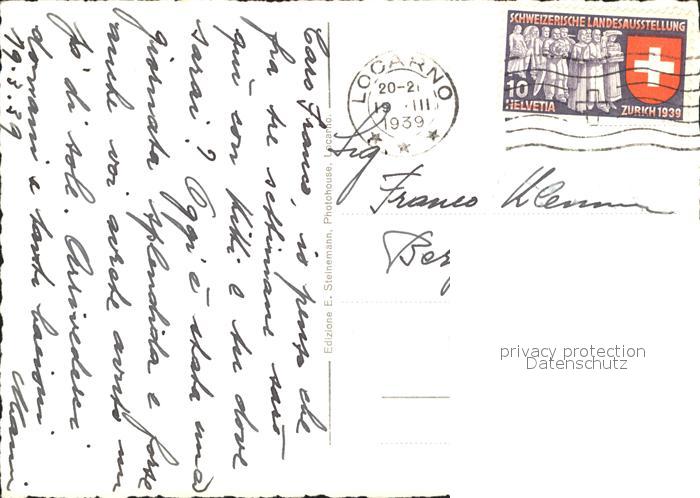 Caro Franco, io penso che
fra tre settimane sarò
qui con Kitti e tu dove
sarai? Oggi è stata una
giornata splendida e forse
anche voi avrete avuto un
pò di sole. Arrivederci
domani e tanti bacioni
19.3.39 Mami
Edizione E. Steinemann, Photohouse, Locarno.
LOCARNO
20-21
19. III
1939
SCHWEIZERISCHE LANDESAUSSTELLUNG
10
HELVETIA
ZURICH 1939
Sig.
Franco
Ber
privacy protection
Datenschutz